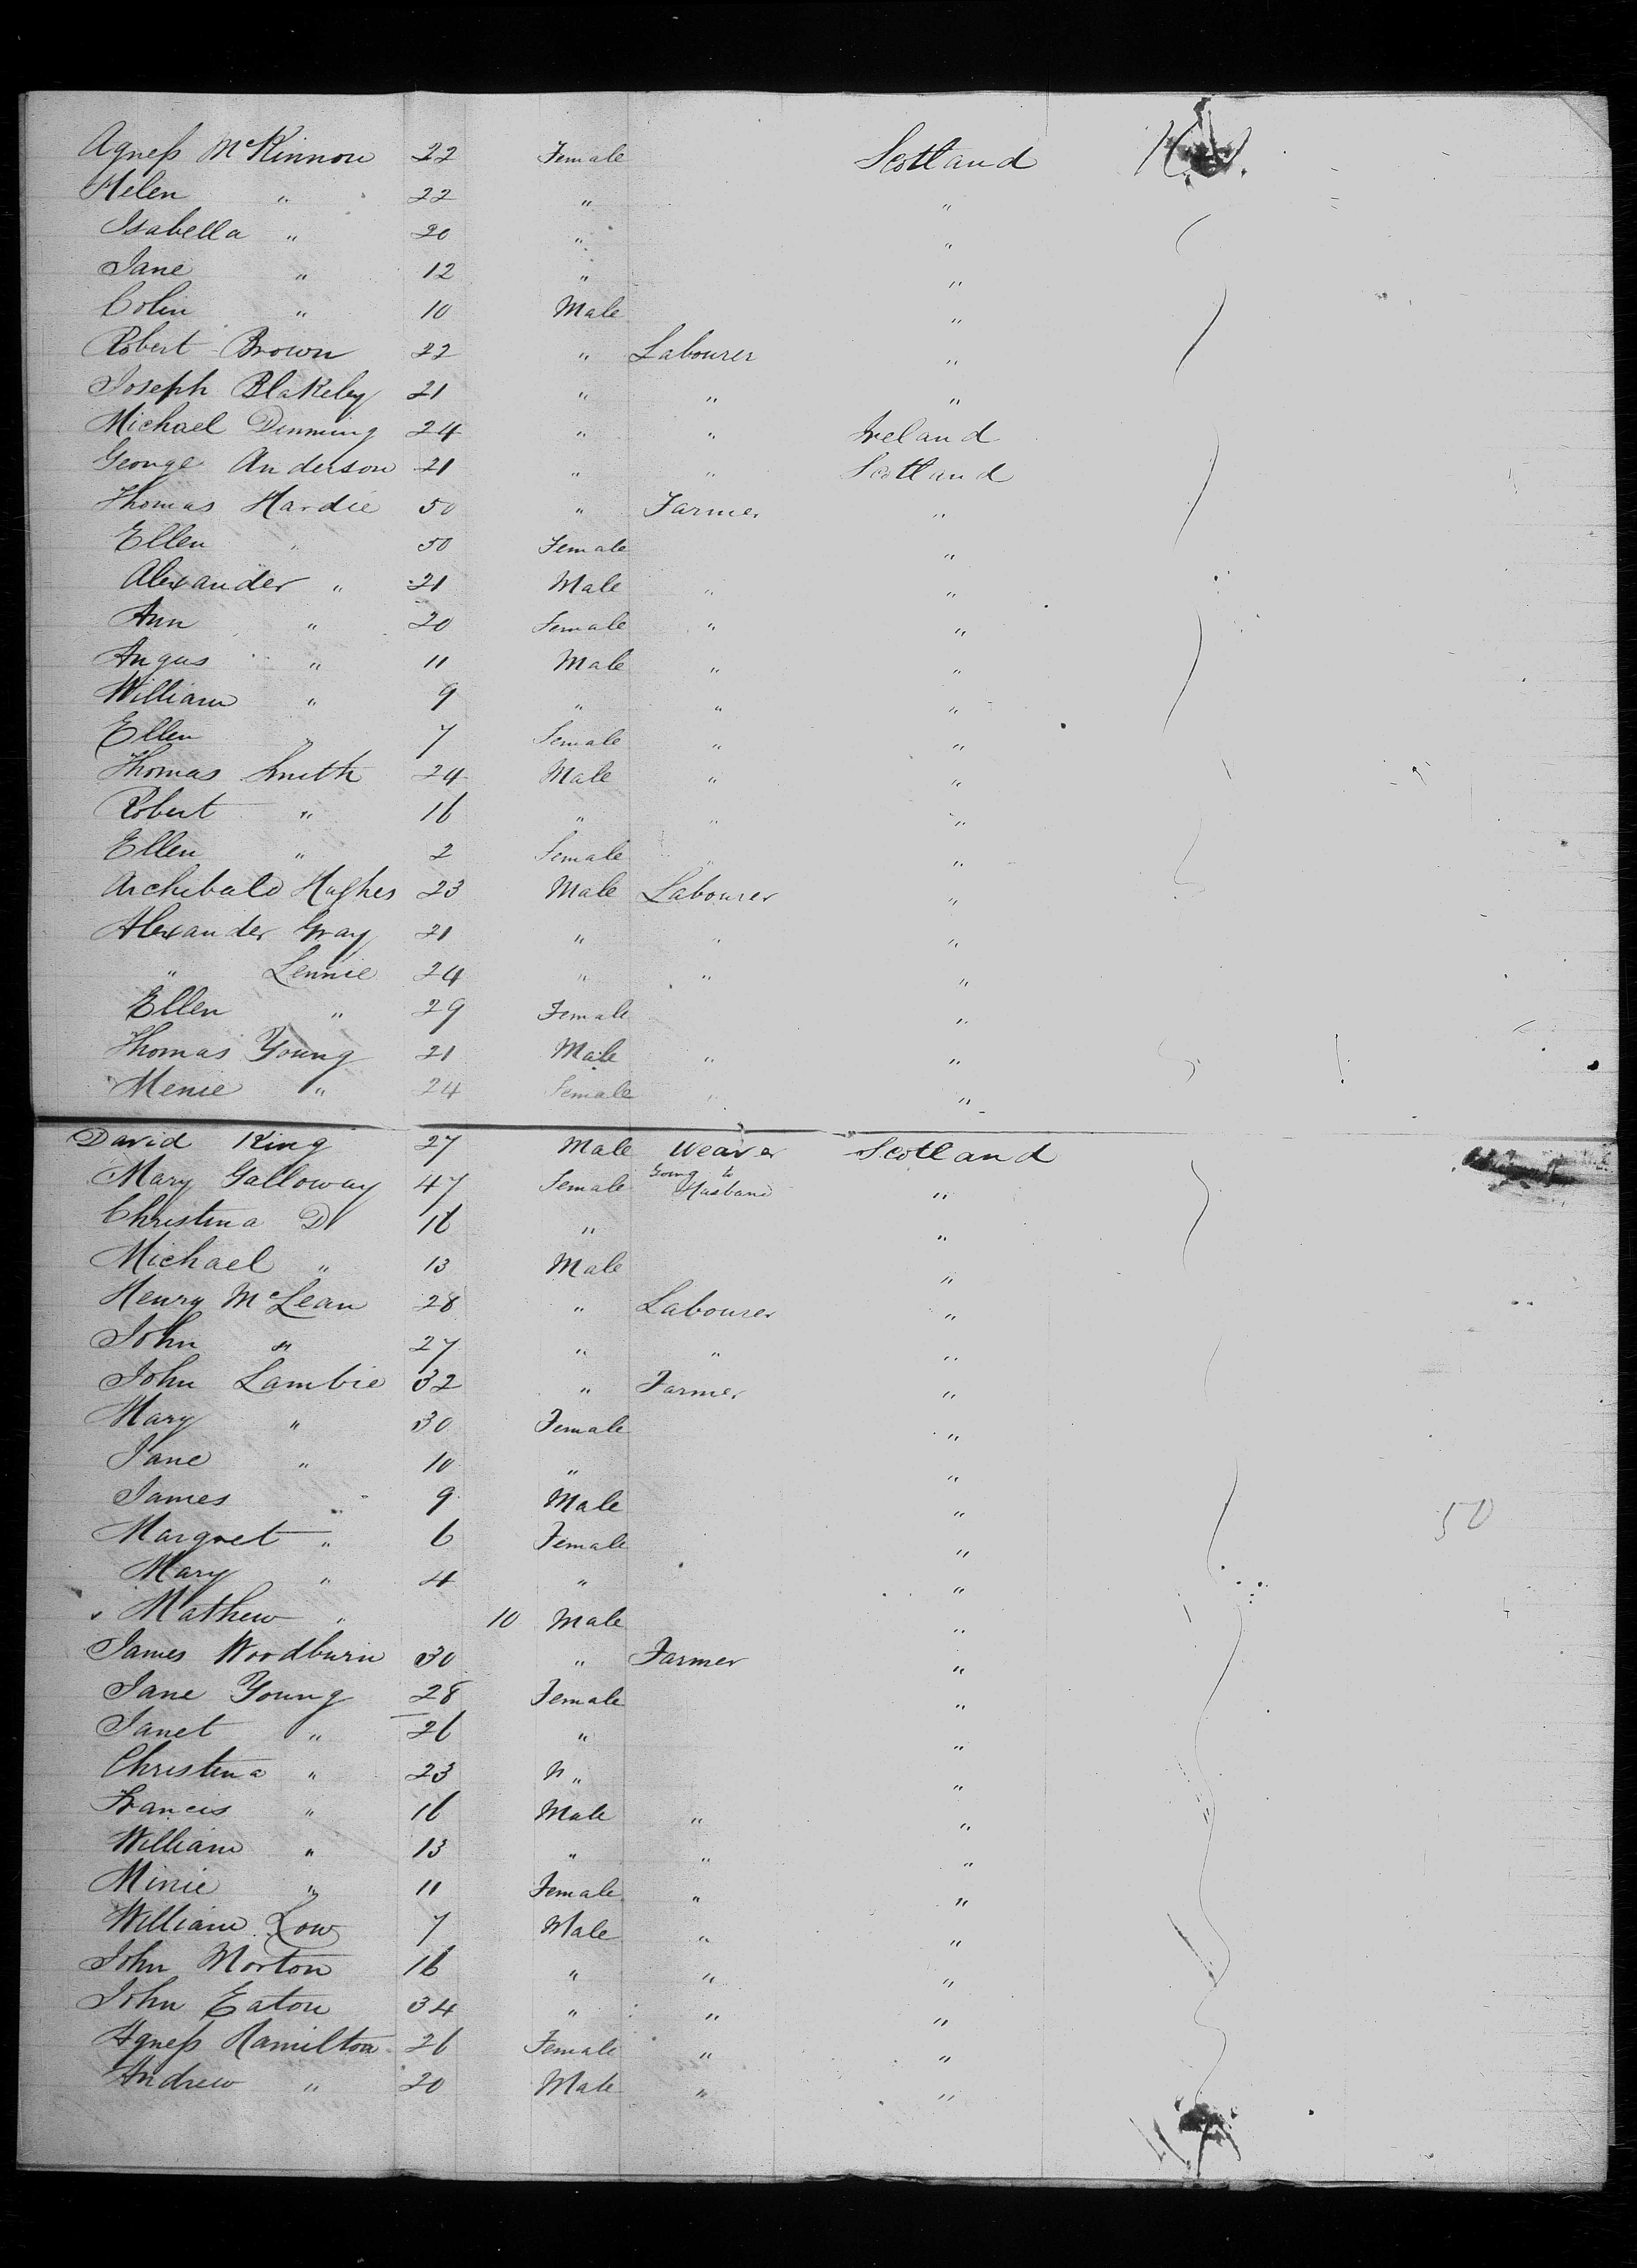 Agness McKinnon 22 Female Scotland
Helen " 22 " "
Isabella " 20 " "
Jane " 12 " "
Colin " 10 Male "
Robert Brown 22 " Labourer "
Joseph Blakeley 21 " " "
Michael Dinning 24 " " Ireland
George Anderson 21 " " Scotland
Thomas Hardie 50 " Farmer "
Ellen " 50 Female "
Alexander " 21 Male " "
Ann " 20 Female " "
Angus " 11 Male " "
William " 9 " " "
Ellen " 7 Female " "
Thomas Smith 24 Male " "
Robert " 16 " " "
Ellen " 2 Female " "
Archibald Hughes 23 Male Labourer "
Alexander Gray 21 " " "
" Lennie 24 " " "
Ellen " 29 Female "
Thomas Young 21 Male " "
Menie " 24 Female " "
David King 27 Male Weaver Scotland
Mary Galloway 47 Female Going to Husband "
Christina Do 16 " "
Michael " 13 Male "
Henry McLean 28 " Labourer "
John " 27 " " "
John Lambie 32 " Farmer "
Mary " 30 Female "
Jane " 10 " "
James " 9 Male " 50
Margret " 6 Female "
Mary " 4 " "
Mathew " 10 Male "
James Woodburn 30 " Farmer "
Jane Young 28 Female "
Janet " 26 " "
Christina " 23 " "
Francis " 16 Male " "
William " 13 " " "
Minie " 11 Female " "
William Low 7 Male " "
John Morton 16 " " "
John Eaton 34 " " "
Agness Hamilton 26 Female " "
Andrew " 20 Male " "